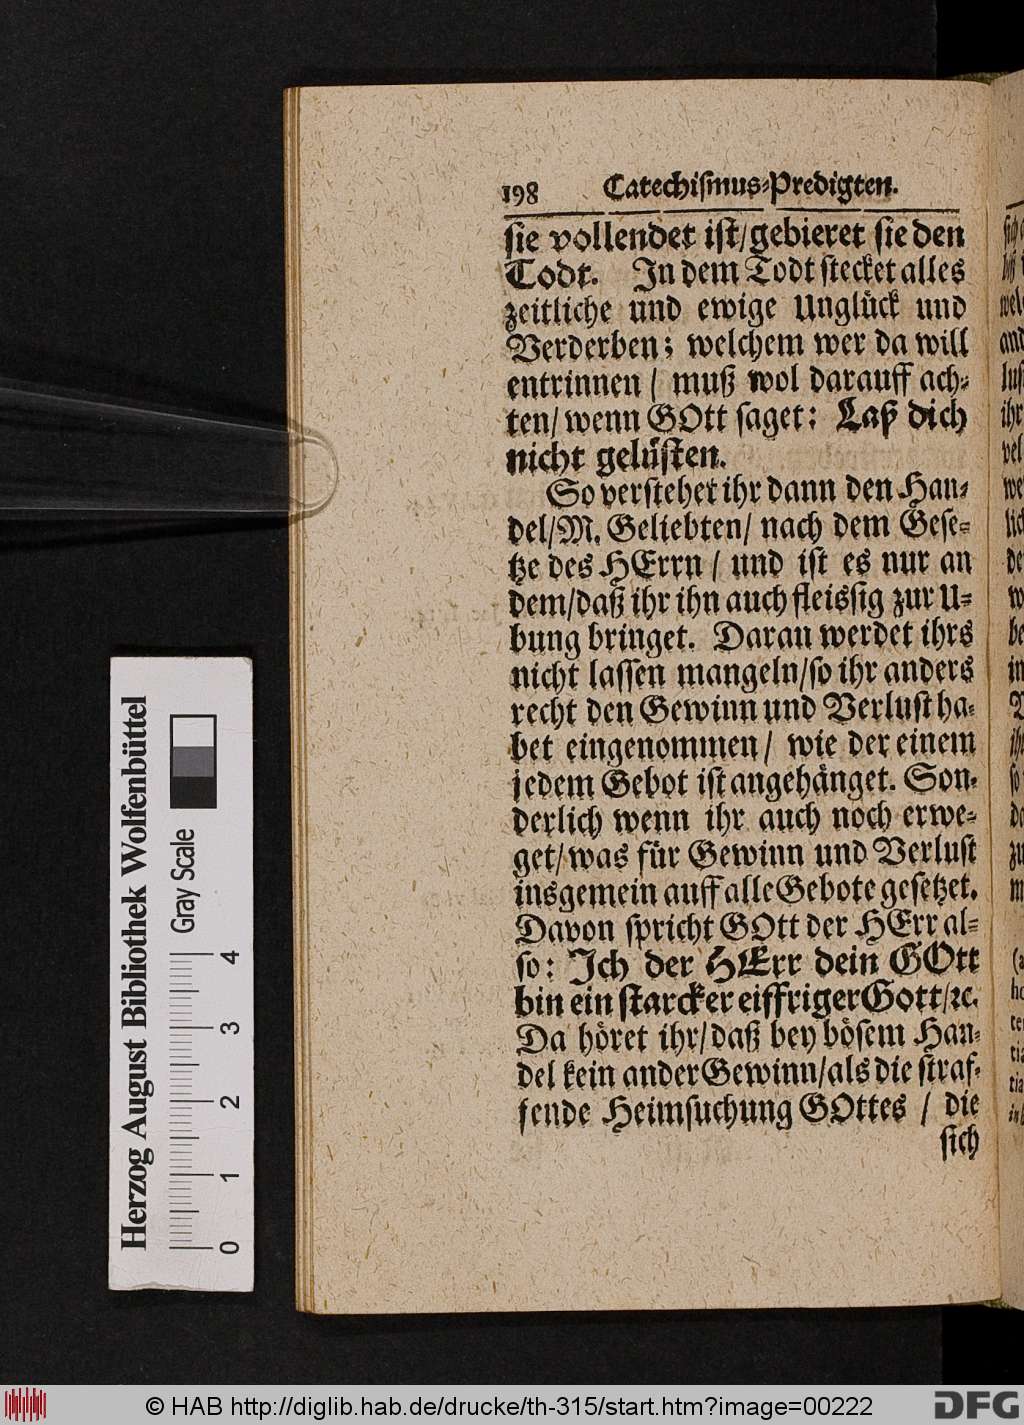 198 Catechiſmus-Predigten.
ſie vollendet iſt/gebieret ſie den
Todt. In dem Todt ſtecket alles
zeitliche und ewige Unglück und
Verderben; welchem wer da will
entrinnen / muß wol darauff ach-
ten/ wenn GOtt ſaget: Laß dich
nicht gelüſten.
So verſtehet ihr dann den Han-
del/M. Geliebten/ nach dem Geſe-
tze des HErrn / und iſt es nur an
dem/daß ihr ihn auch fleiſſig zur U-
bung bringet. Daran werdet ihrs
nicht laſſen mangeln/ſo ihr anders
recht den Gewinn und Verluſt ha-
bet eingenommen/ wie der einem
jedem Gebot iſt angehänget. Son-
derlich wenn ihr auch noch erwe-
get/was für Gewinn und Verluſt
insgemein auff alle Gebote geſetzet.
Davon ſpricht GOtt der HErr al-
ſo: Ich der HErr dein GOtt
bin ein ſtarcker eiffriger Gott/ꝛc.
Da höret ihr/daß bey böſem Han-
del kein ander Gewinn/als die ſtraf-
fende Heimſuchung GOttes / die
ſich
Herzog August Bibliothek Wolfenbüttel
Gray Scale
0 1 2 3 4
© HAB http://diglib.hab.de/drucke/th-315/start.htm?image=00222
DFG